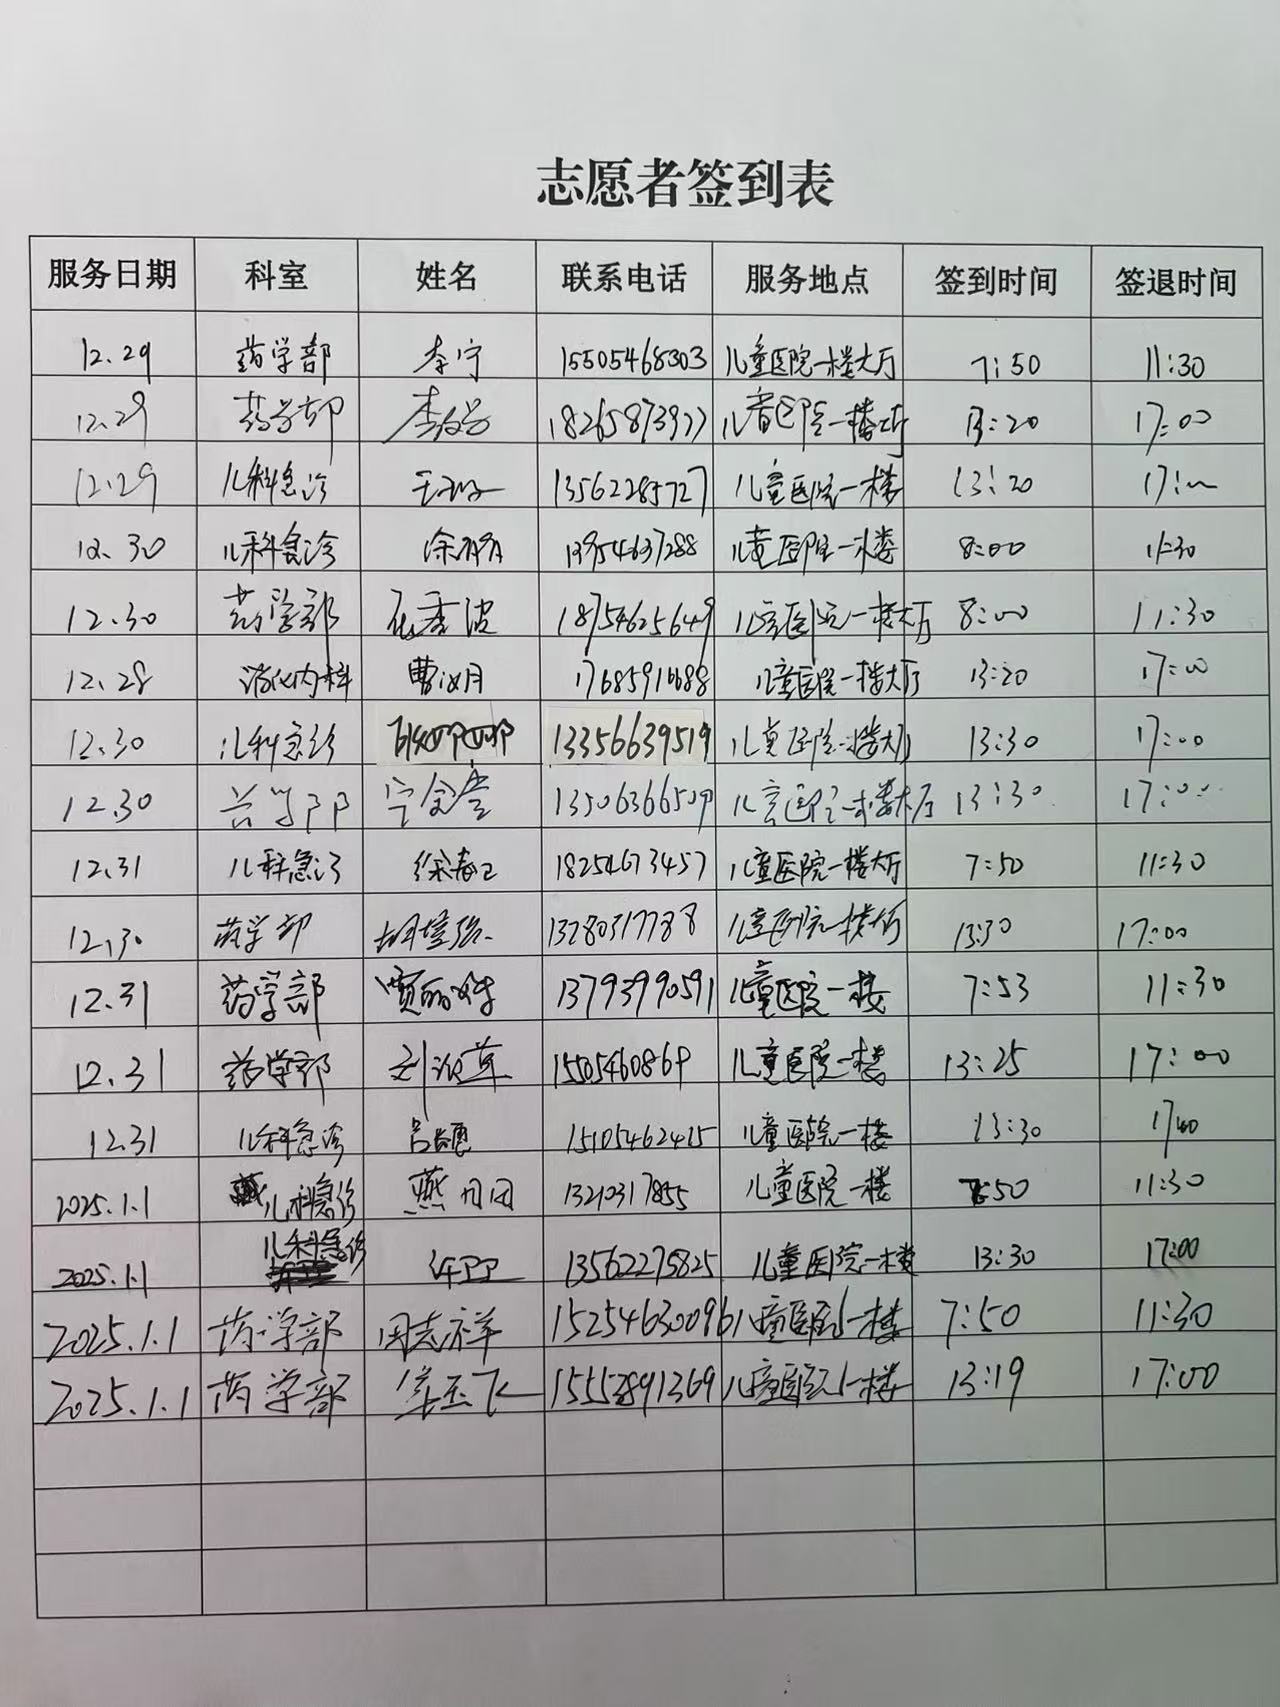 志愿者签到表
服务日期 科室 姓名 联系电话 服务地点 签到时间 签退时间
12.29 药学部 李宁 15505468303 儿童医院一楼大厅 7:50 11:30
12.29 药学部 18265873977 儿童医院一楼大厅 13:20 17:00
12.29 儿科急诊 13562285727 儿童医院一楼 13:20 17:00
12.30 儿科急诊 13954637288 儿童医院一楼 8:00 11:30
12.30 药学部 18754625649 儿童医院一楼大厅 8:00 11:30
12.28 消化内科 曹汝月 儿童医院一楼大厅 13:20 17:00
12.30 儿科急诊 13356639519 儿童医院一楼大厅 13:30 17:00
12.30 药学部 13506366509 儿童医院一楼大厅 13:30 17:00
12.31 儿科急诊 18254673457 儿童医院一楼大厅 7:50 11:30
12.30 药学部 儿童医院一楼大厅 13:30 17:00
12.31 药学部 13793990591 儿童医院一楼 7:53 11:30
12.31 药学部 15505460869 儿童医院一楼 13:25 17:00
12.31 儿科急诊 吕懿 15105462415 儿童医院一楼 13:30
2025.1.1 儿科急诊 燕丹丹 13210317855 儿童医院一楼 7:50 11:30
2025.1.1 儿科急诊 13562275825 儿童医院一楼 13:30 17:00
2025.1.1 药学部 周志祥 15254630096 儿童医院一楼 7:50 11:30
2025.1.1 药学部 15552891369 儿童医院一楼 13:19 17:00